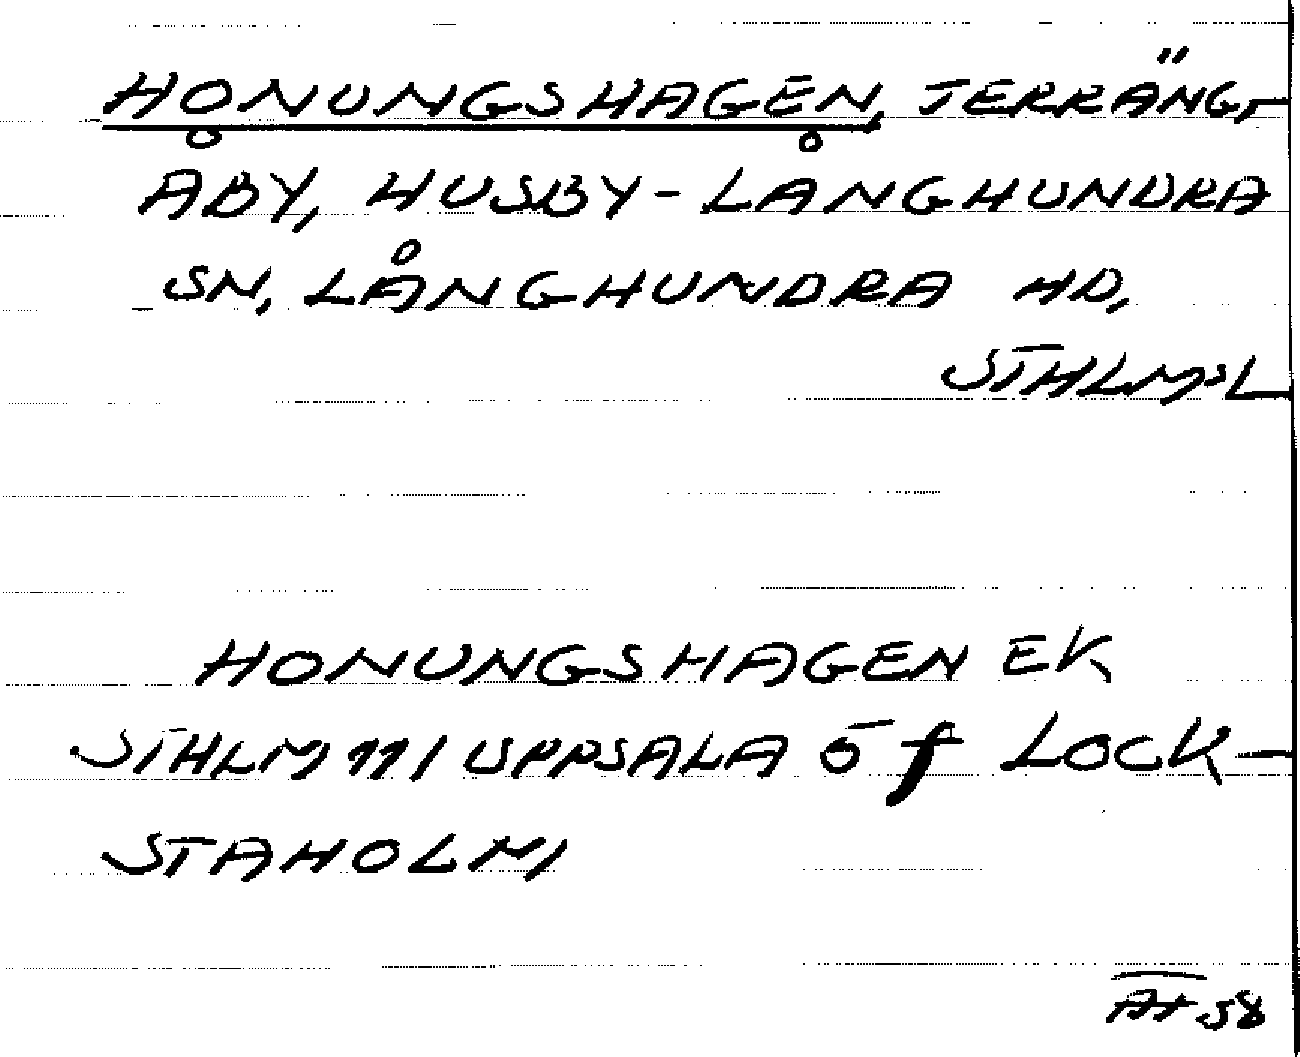 HONUNGSHAGEN, TERRÄNG,
ÅBY, HUSBY-LÅNGHUNDRA
SN, LÅNGHUNDRA HD,
STHLMSL
HONUNGSHAGEN EK
STHLM 111 UPPSALA 5 f LOCK-
STAHOLM
58